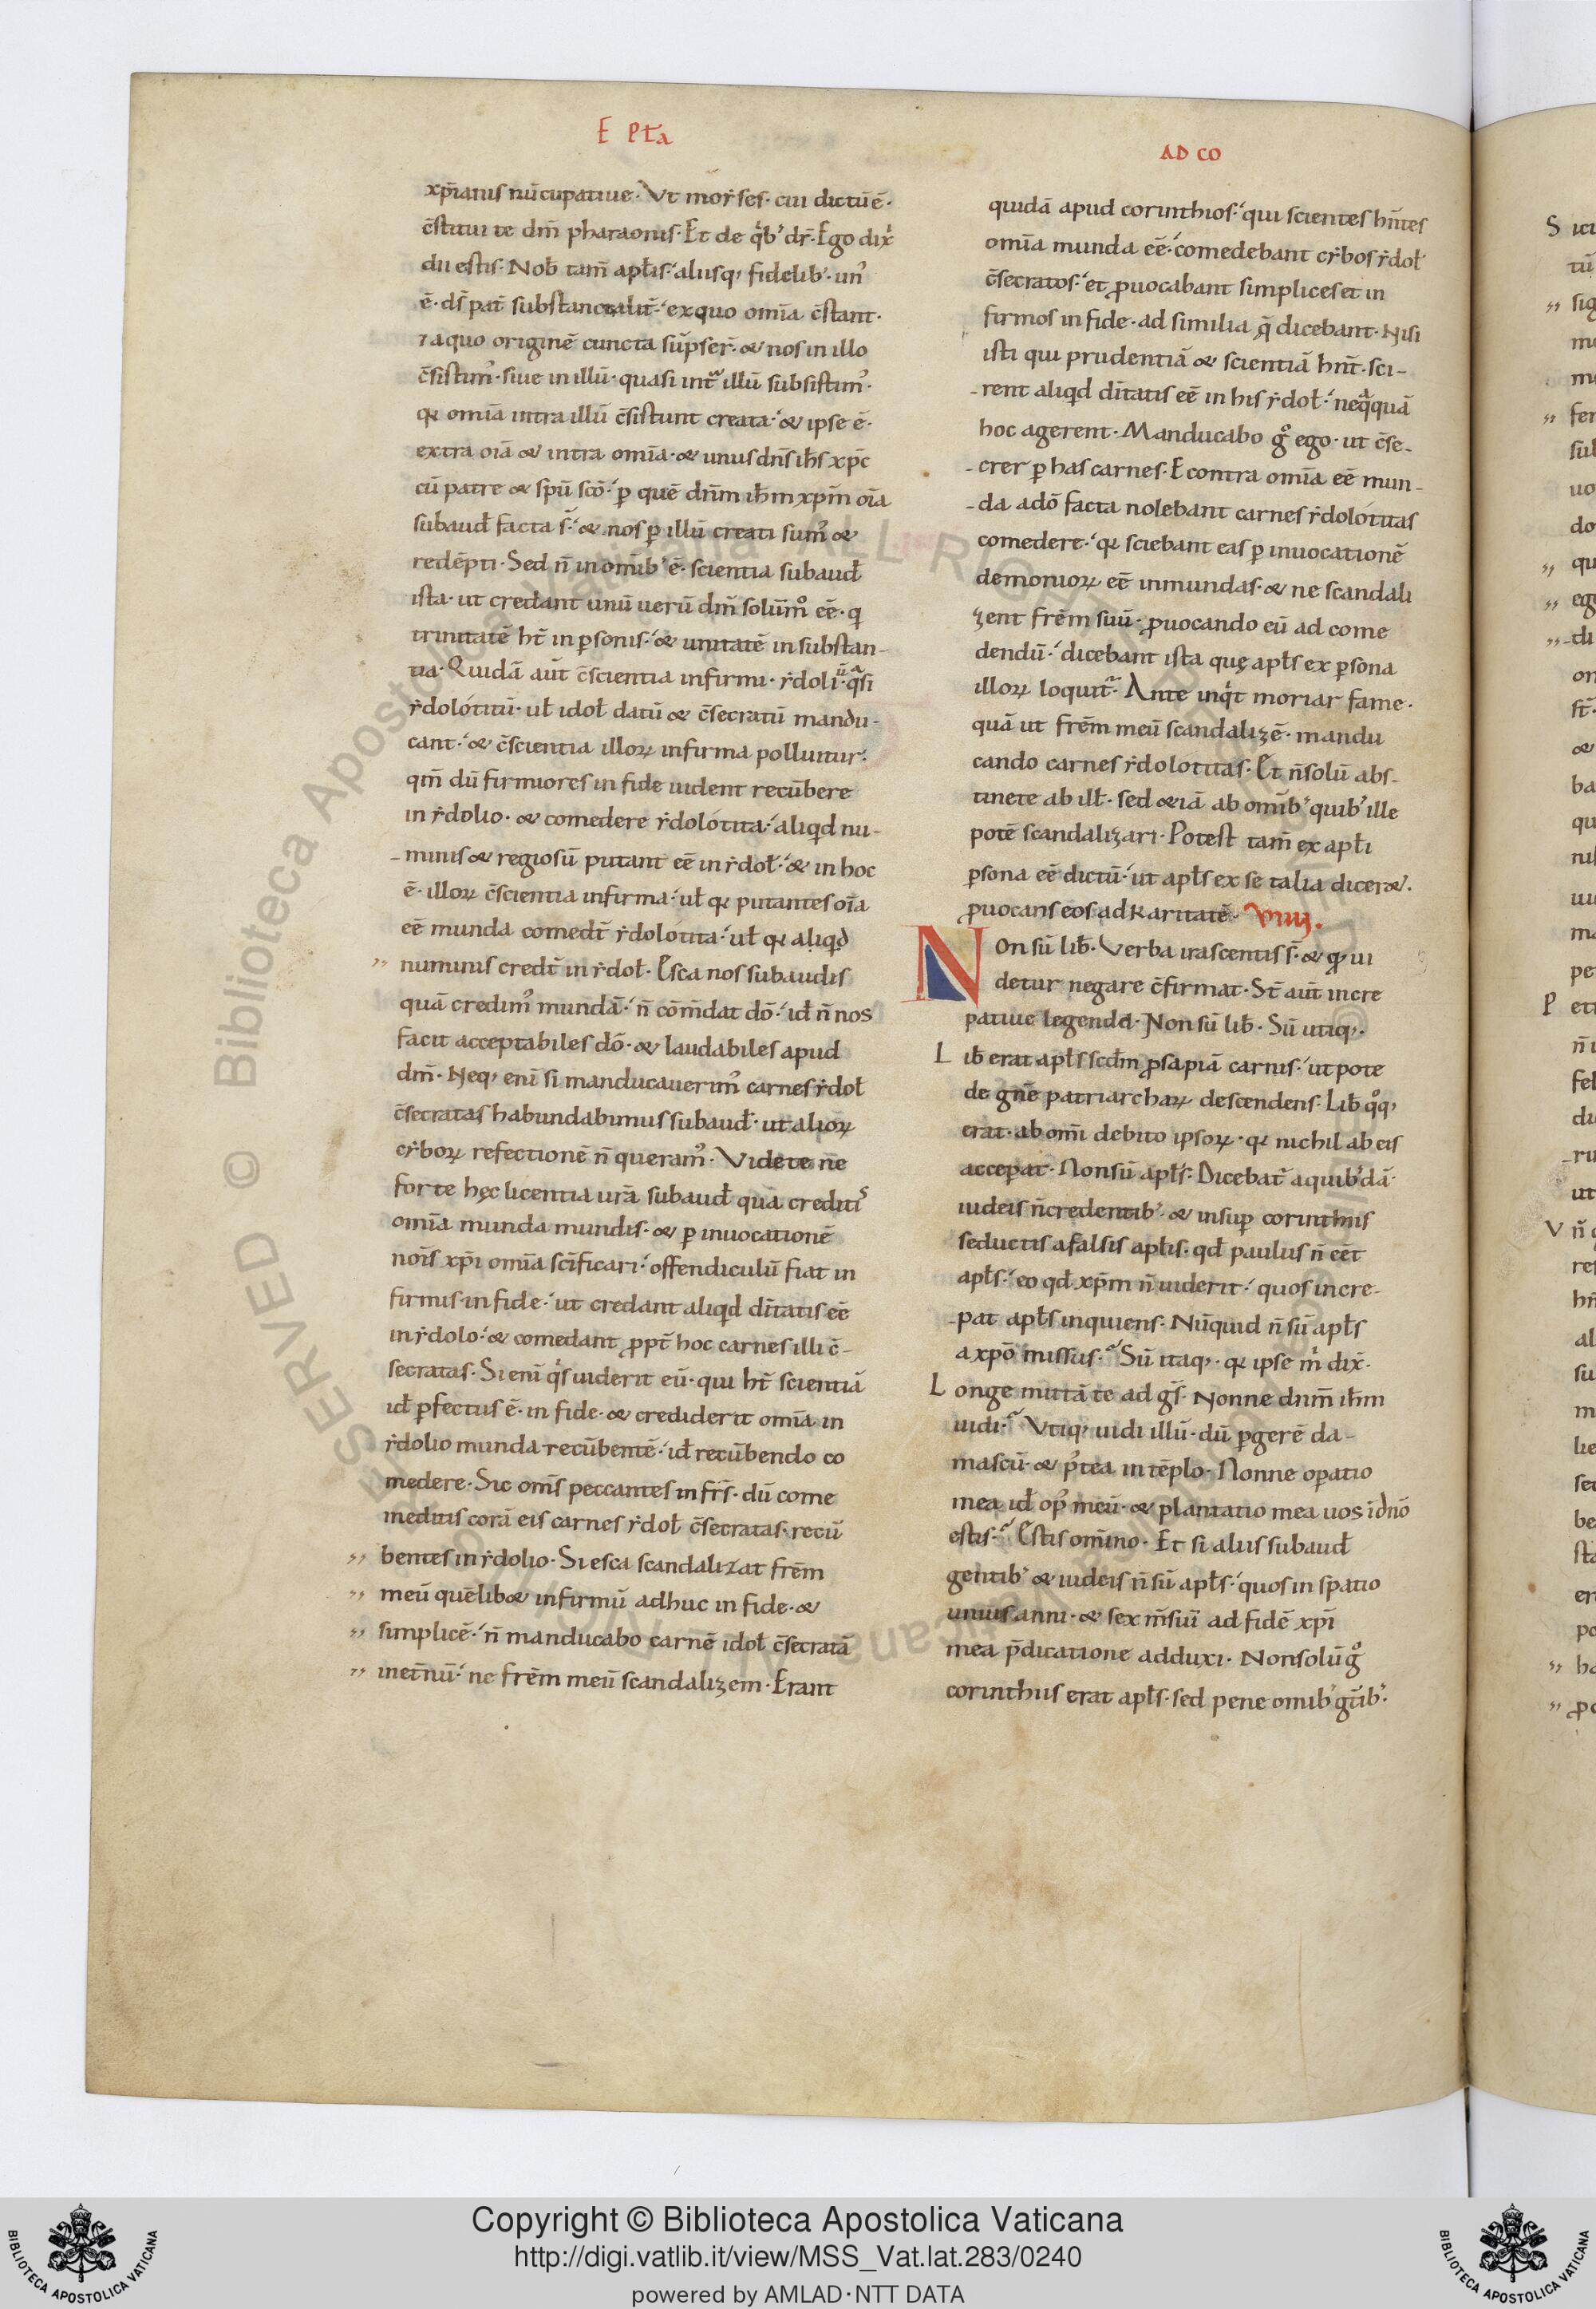 E PT̄a
AD CO
xp̄ianis nūcupatiue. Vt moẏses. cui dictū ē.
c̄stitui te dm̄ pharaonis. Et de qͥb' dr̄. Ego dixͥ
dii estis. Nob̄ tam̄ apłis. aliisq; fidelib'. un'
ē. ds̄ pat̄ substancialit̄. ex quo omīa c̄stant.
⁊ a quo originē cuncta sūpser̄. & nos in illo
c̄sistim'. siue in illū. quasi int̄ illū subsistim'.
qꝛ omīa intra illū c̄sistunt creata. & ipse ē.
extra oīa & intra omīa. & unus dn̄s ih̄s xp̄c
cū patre & sp̄u scō. ꝑ quē dn̄m ih̄m xp̄m oīa
subaud̄ facta s̄. & nos ꝑ illū creati sum' &
redēpti. Sed n̄ in omīb' ē. scientia subaud̄
ista. ut credant unū uerū dm̄ solūmͦ eē. q
trinitatē ht̄ in ꝑsonis. & unitatē in substan-
tia. Quidā aūt c̄scientia infirmi. ẏdoli. qͣsi
ẏdolótitū. uł idoł datū & c̄secratū mandu-
cant. & c̄scientia illoꝝ infirma polluitur.
qm̄ dū firmiores in fide uident recūbere
in ẏdolio. & comedere ẏdolótita. aliqd nu-
minis & regiosū putant eē in ẏdoł. & in hoc
ē. illoꝝ c̄scientia infirma. uł qꝛ putantes oīa
eē munda comedt̄ ẏdolótita. uł qꝛ aliqd
numinis credt̄ in ẏdoł. Esca nos subaudis
quā credim' mundā. n̄ cōm̄dat dō. id̄ n̄ nos
facit acceptabiles dō. & laudabiles apud
dm̄. Neq; eni si manducauerim' carnes ẏdoł
c̄secratas habundabimus subaud̄. ut alioꝝ
cẏboꝝ refectionē n̄ queram'. Videte ne
forte hęc licentia ur̄a subaud̄ qua creditis
omīa munda mundis. & ꝑ inuocationē
nōis xp̄i omīa scīficari. offendiculū fiat in
firmis in fide. ut credant aliqd dītatis eē
in ẏdolo. & comedant ꝓpt̄ hoc carnes illi c̄-
secratas. Si enī qͥs uiderit eū. qui ht̄ scientiā
id̄ ꝑfectus ē. in fide. & crediderit omīa in
ẏdolio munda recūbentē. id̄ recūbendo co
medere. Sic om̄s peccantes in fr̄s. dū come
meditis corā eis carnes ẏdoł c̄secratas. recū
bentes in ẏdolio. Si esca scandalizat frēm
meū quēlib& infirmū adhuc in fide. &
simplicē. n̄ manducabo carnē idoł c̄secratā
inet̄nū. ne frēm meū scandalizem. Erant
quidā apud corinthios. qui scientes hn̄tes
omīa munda eē. comedebant cẏbos ẏdoł
c̄secratos. et ꝓuocabant simplices et in
firmos in fide. ad similia q̄ dicebant. Nisi
isti qui prudentiā & scientiā hn̄t. sci-
rent aliqd dītatis eē in his ẏdoł. neqͣquā
hoc agerent. Manducabo gͦ ego. ut c̄se-
crer ꝑ has carnes. E contra omīa eē mun-
da adō facta nolebant carnes ẏdolótitas
comedert. qꝛ sciebant eas ꝑ inuocationē
demonioꝝ eē inmundas. & ne scandali
zent frēm suū. ꝓuocando eū ad come
dendū. dicebant ista quę apłs ex ꝑsona
illoꝝ loquit̄. Ante inqͥt moriar fame.
quā ut frēm meū scandalizē. mandu
cando carnes ẏdolotitas. Et n̄ solū abs-
tinete ab ill̄. sed &iā ab omīb' quib' ille
potē scandalizari. Potest tam̄ ex apłi
ꝑsona eē dictū. ut apłs ex se talia dicer&.
ꝓuocans eos ad karitatē. VIIII.
Non sū lib̄. Verba irascentis s̄. & qͦ ui
detur negare c̄firmat. St̄ aūt incre
patiue legenda. Non sū lib̄. Sū utiq;.
Lib̄ erat apłs scd̄m ꝓsapiā carnis. ut pote
de gn̄e patriarchaꝝ descendens. Lib̄ qͦq;
erat. ab omī debito ipsoꝝ. qꝛ nichil ab eis
accepat. Non sū apłs. Dicebat̄ a quib'dā
iudeis n̄ credentib'. & insuꝑ corinthiis
seductis a falsis apłis. qd̄ paulus n̄ eēt
apłs. eo qd̄ xp̄m n̄ uiderit. quos incre-
pat apłs inquiens. Nūquid n̄ sū apłs
a xpō missus. Sū itaq;. qꝛ ipse mͥ dix̄.
Longe mittā te ad gs̄. Nonne dnm̄ ih̄m
uidi. Vtiq; uidi illū. dū ꝑgerē da-
mascū. & p'tea in tēplo. Nonne oꝑatio
mea id̄ op' meū. & plantatio mea uos ī dn̄o
estis. Estis omīno. Et si aliis subaud̄
gentib' & iudeis n̄ sū apłs. quos in spatio
unius anni. & sex m̄siū ad fidē xp̄i
mea p̄dicatione adduxi. Non solū gͦ
corinthiis erat apłs. sed pene omib' gt̄ib'.
Copyright © Biblioteca Apostolica Vaticana
http://digi.vatlib.it/view/MSS_Vat.lat.283/0240
powered by AMLAD·NTT DATA